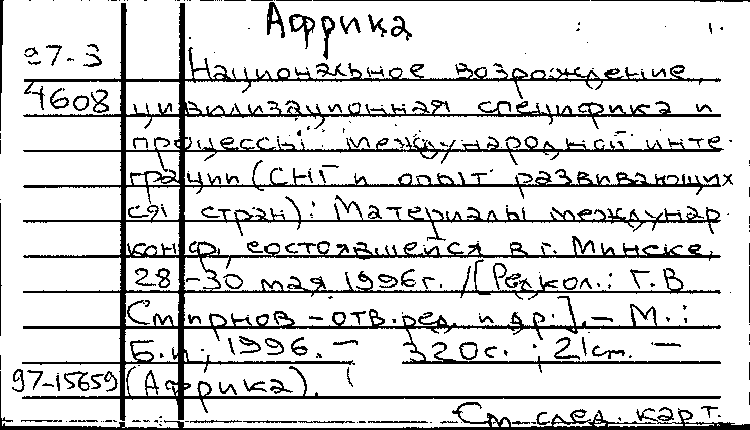 Африка
97-3 Национальное возрождение,
4608 цивилизационная специфика и
процессы международной инте-
грации (СНГ и опыт развивающих
ся стран): Материалы междунар.
конф., состоявшейся в г. Минске,
28-30 мая 1996г. / [Редкол.: Г.В
Смирнов - отв. ред. и др.]. - М.:
Б.и., 1996. - 320с. ; 21см. -
97-15659 (Африка).
См. след. карт.